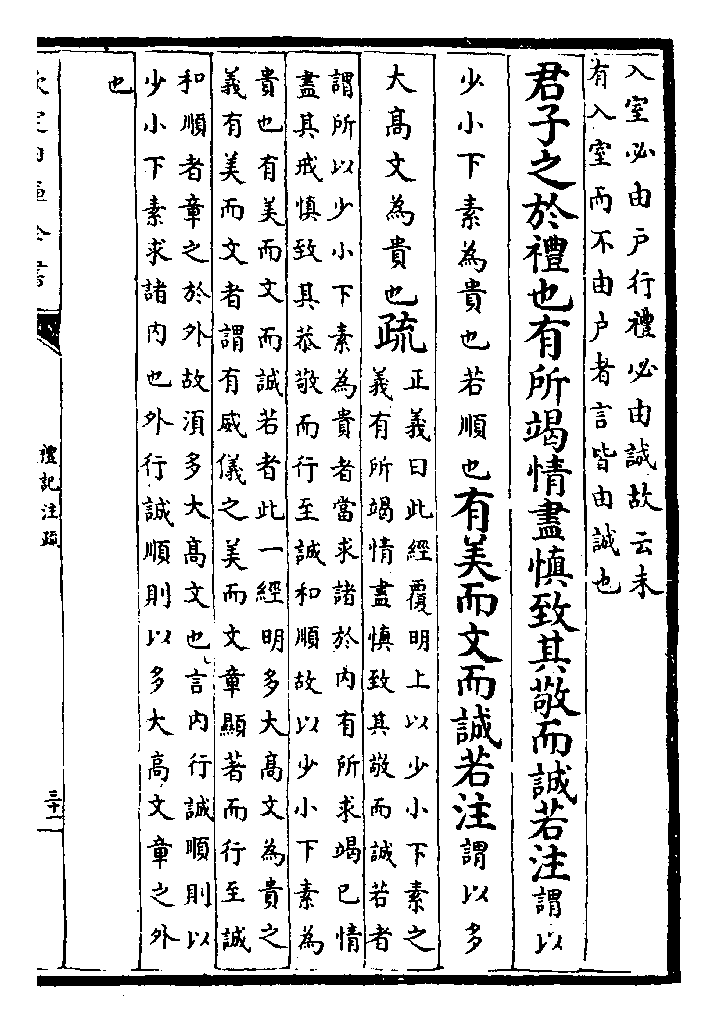 入室必由戶行禮必由誠故云未
有入室而不由戶者言皆由誠也
君子之於禮也有所竭情盡慎致其敬而誠若注謂以
少小下素為貴也若順也有美而文而誠若注謂以多
大髙文為貴也疏正義曰此經覆明上以少小下素之
義有所竭情盡慎致其敬而誠若者
謂所以少小下素為貴者當求諸於内有所求竭己情
盡其戒慎致其恭敬而行至誠和順故以少小下素為
貴也有美而文而誠若者此一經明多大髙文為貴之
義有美而文者謂有威儀之美而文章顯著而行至誠
和順者章之於外故須多大髙文也言内行誠順則以
少小下素求諸内也外行誠順則以多大髙文章之外
也
欽定四庫全書
禮記注疏
三十二